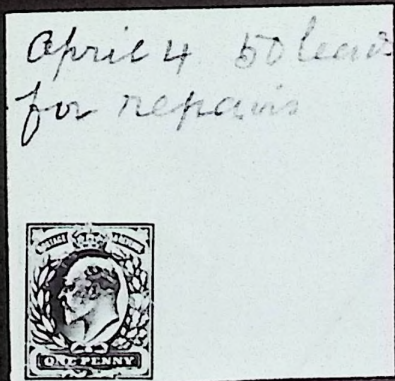 April 4 50 leads
for repairs
POSTAGE REVENUE
ONE PENNY